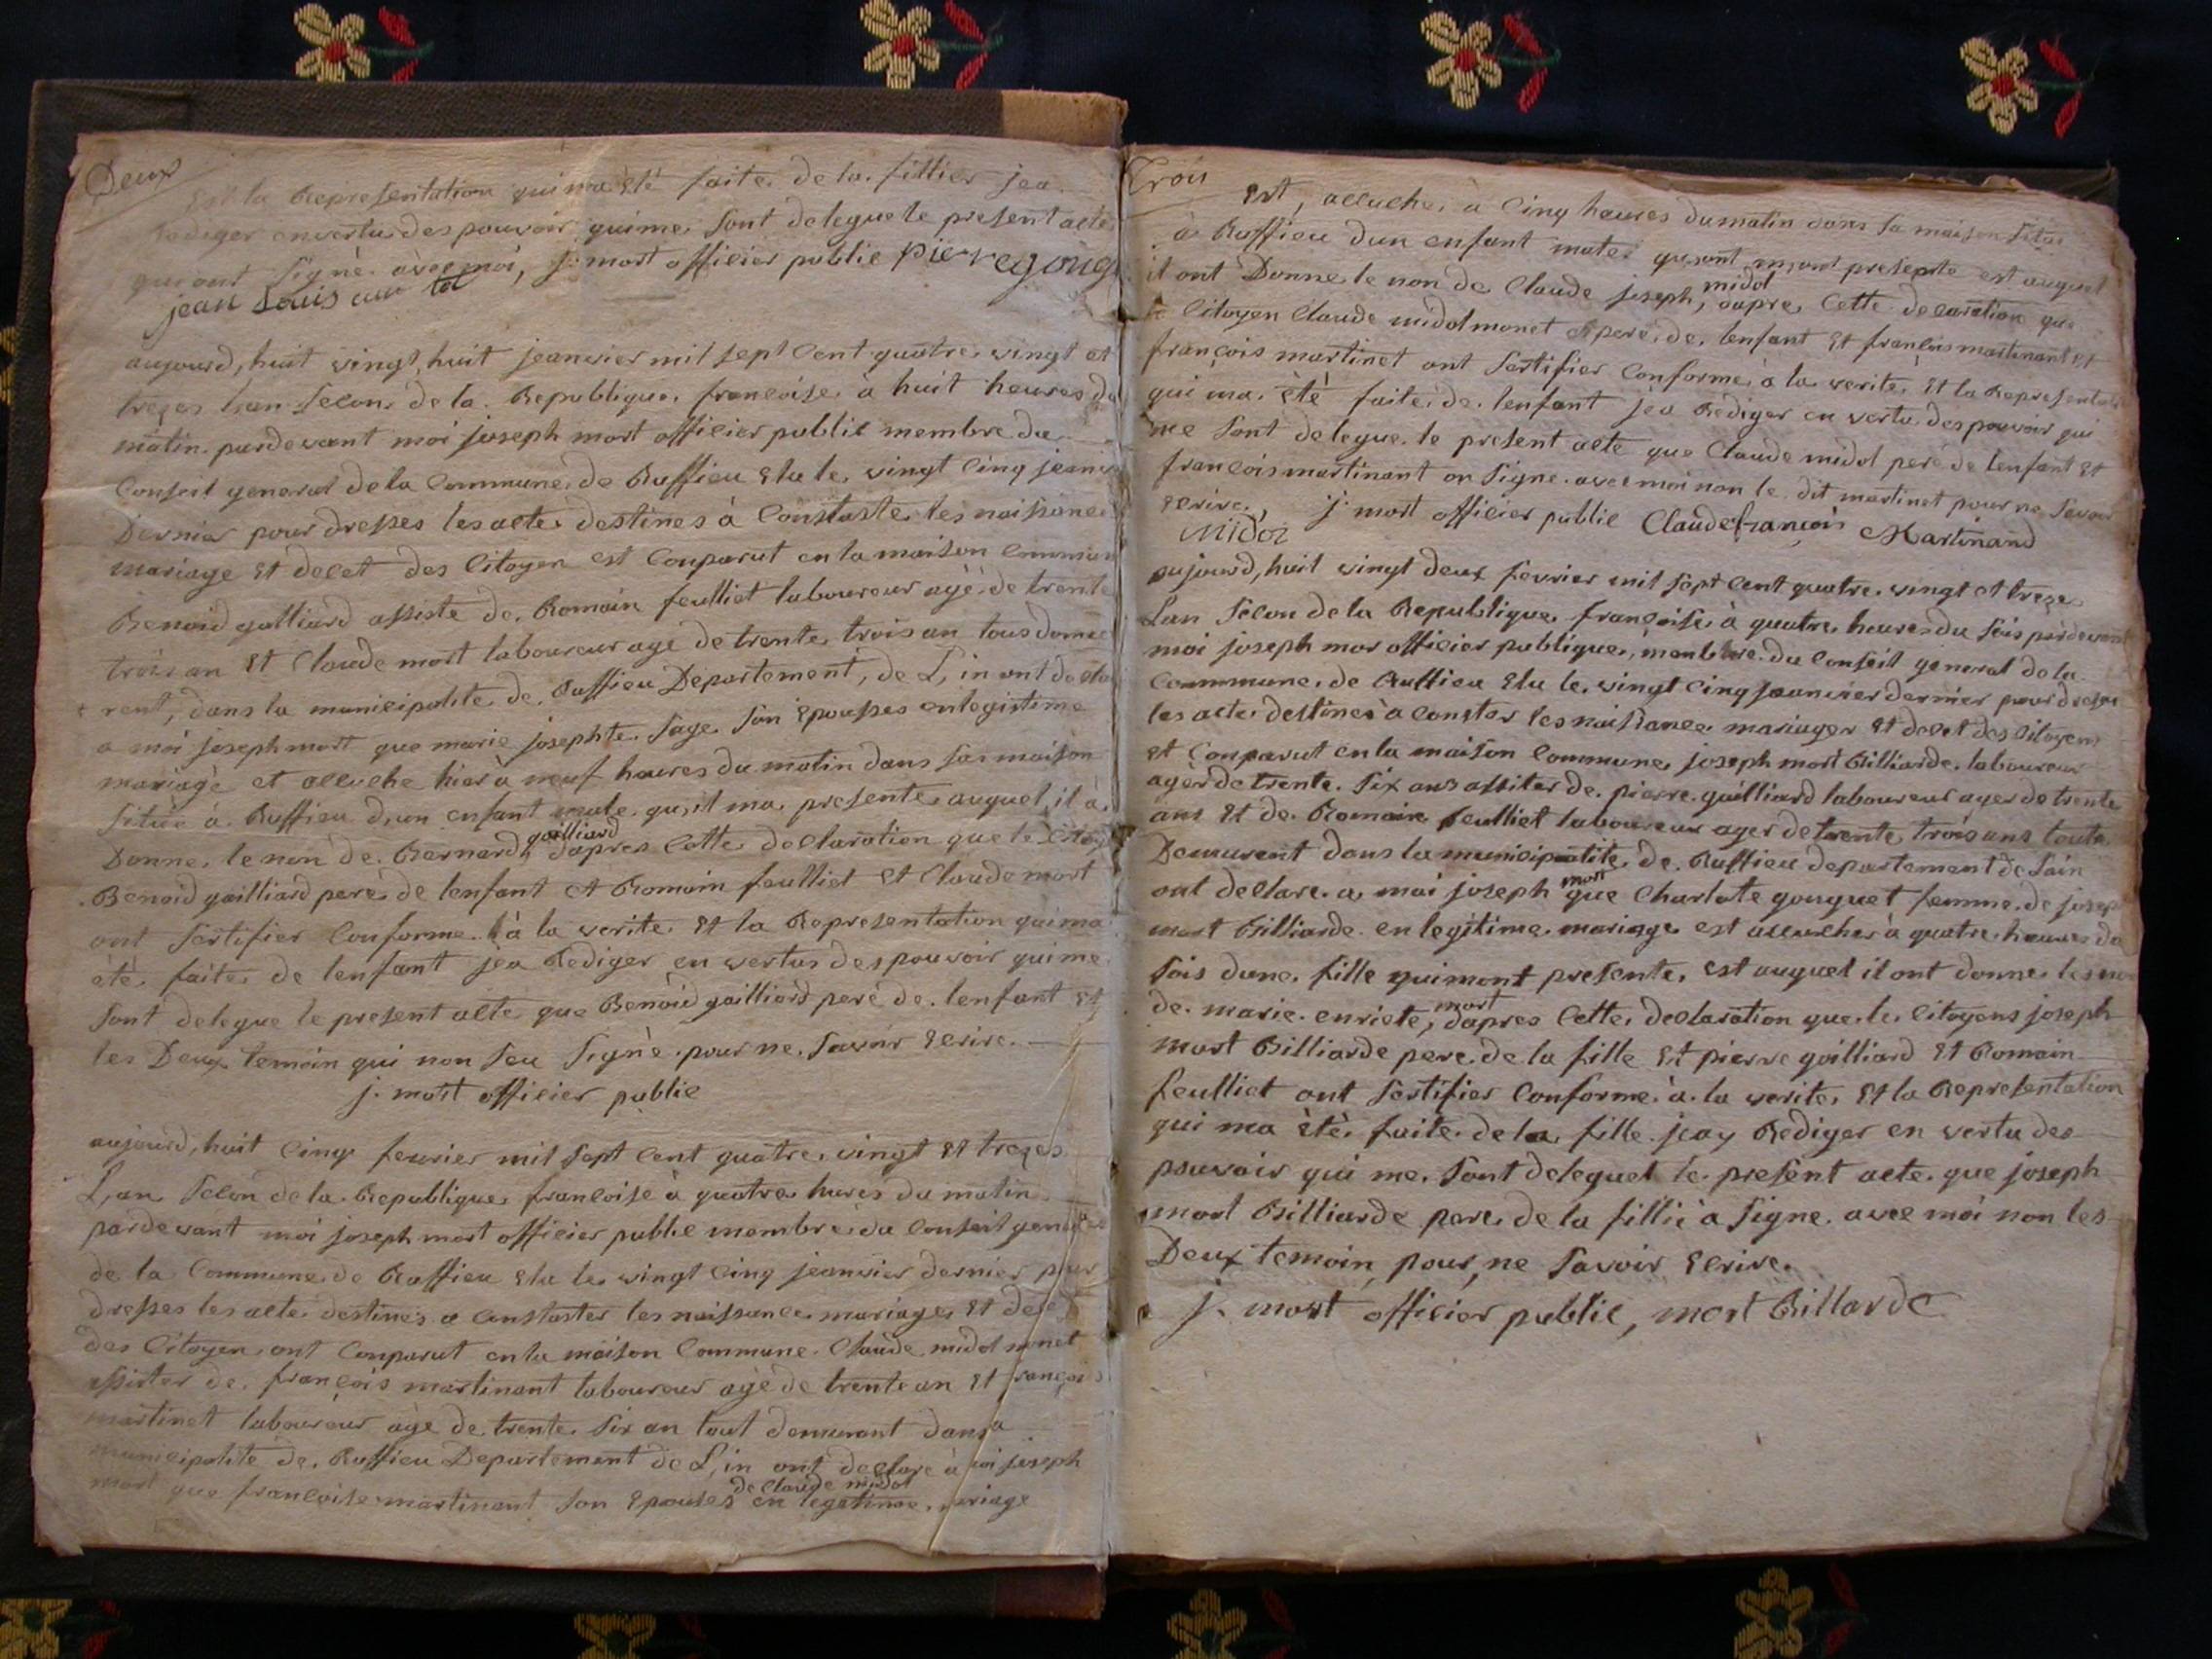 Deux
Est la Representation qui ma été faite de la fillier jea
Rediger envertu des pouvoir quime sont delegue le present acte
qui ont signè avec moi, j. mort officier public pierre goug
jean Louis
aujourd, huit vingt huit jeanvier mil sept cent quatre vingt et
trezes lan selond de la Republique francoise à huit heures du
matin pardevant moi joseph mort officier public membre du
Conseil general dela Commune de Ruffieu Elu le vingt cinq jeanvie
Dernier pour dresses les acte destines à Constaste les naissance
mariage Et decet des Citoyen est Conparut en la maison Commun
Benoid galliard assiste de Romain feulliet laboureur agé de trente
trois an Et Claude mort laboureur age de trente trois an tous deme
rent, dans la municipalite de Ruffieu Departement, de L, in ont decla
a moi joseph mort que marie josephte sage son Epousses enlegistime
mariage et accuche hier à neuf heures du matin dans sa maison
sitùe à Ruffieu d, un enfant male qu, il ma presente auquel il à
Donne le non de Bernard, gailliard dapres Cette declaration que le Citoy
Benoid gailliard pere de lenfant et Romain feulliet et Claude mort
ont sertifier Conforme à la verite Et la Representation qui ma
été faite de lenfant jea Rediger en vertus des pouvoir qui me
sont delegue le present acte que Benoid gailliard pere de lenfant Et
les Deux temoin qui non seu signè pour ne savoir Ecrire.
j. mort officier public
aujourd, huit Cinq fevrier mil sept Cent quatre vingt Et trezes
L, an selon de la Republique francoise à quatre hures du matin
pardevant moi joseph mort officier public membre du Conseil general
de la Commune de Ruffieu Elu le vingt Cinq jeanvier dernier pour
dresses les acte destines a Constaster les naissance mariage Et decet
des Citoyen ont Conparut en la maison Commune Claude midol monet
assister de françois martinant laboureur agè de trente an Et françois
martinet laboureur age de trente six an tout demurant dans a
municipalite de Ruffieu Departement de L, in ont declare à moi joseph
mort que francoise martinant son Epouses de Claude midol en legetime mriage
Trois
Est, accuche à Cinq heures dumatin dans sa maison situe
à Ruffieu dun enfant male qui,ont m,ont presente est auquel
il ont Donne le non de Claude joseph, midol dapre Cette declaration que
le Citoyen Claude midol monet pere de lenfant Et francois martinant Et
françois martinet ont sertifier Conforme à la verite Et la Represental
qui ma été faite de lenfant jea Rediger en vertu des pouvoir qui
me sont delegue le present acte que Claude midol pere de lenfant Et
francois martinant on signe avec moi non le dit martinet pour ne savoir
Ecrire, j. mort officier public Claude françois Martinand
Midol
aujourd, huit vingt deux fevrier mil sept Cent quatre vingt et treze
Lan selon de la Republique françoise à quatre heures du sois pardevant
moi joseph mor officier publique, membre du Conseil general de la
Commmune de Ruffieu Elu le vingt Cinq jeanvier dernier pour dresse
les acte destines à Conster les naissance mariager Et decet des Citoyens
et Conparut en la maison Commune joseph mort Billiarde laboureur
ager de trente six ans assiter de pierre guilliard laboureur ager de trente
ans Et de Romain feulliet laboureur ager de trente trois ans toute
Demurent dans la municipalite de Ruffieu departement de Lain
ont declare a moi joseph mort que Charlote gouguet femme de josep
mort Billiarde en legitime mariage est accucher à quatre heures du
sois dune fille quimont presente est auquel il ont donne les no
de marie enriete, mort dapres Cette declaration que le Citoyens joseph
mort Billiarde pere de la fille Et pierre goilliard Et Romain
feulliet ont sertifier Conforme à la verite Et la Representation
qui ma été faite de la fille jeay Rediger en vertu des
pouvoir qui me sont deleguet le present acte que joseph
mort Billiarde pere de la fillie à signe avec moi non les
Deux temoin pour ne savoir Ecrire.
j. mort officier public, mort Billarde